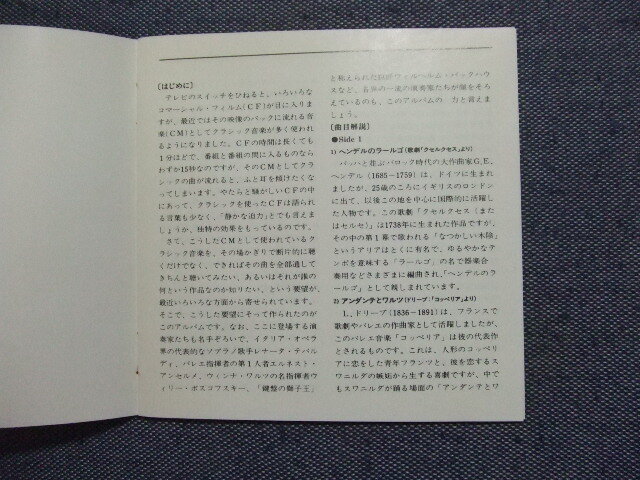 〔はじめに〕
テレビのスイッチをひねると、いろいろな
コマーシャル・フィルム(CF)が目に入りま
すが、最近ではその映像のバックに流れる音
楽(CM)としてクラシック音楽が多く使われ
るようになりました。CFの時間は長くても
1分ほどで、番組と番組の間に入るものなら
わずか15秒なのですが、そのCMとしてクラ
シックの曲が流れると、ふと耳を傾けたくな
ってしまいます。やたらと騒がしいCFの中
にあって、クラシックを使ったCFは語られ
る言葉も少なく、「静かな迫力」とでも言えま
しょうか、独特の効果をもっているのです。
さて、こうしたCMとして使われているク
ラシック音楽を、その場かぎりで断片的に聴
くだけでなく、できればその曲を全部通して
きちんと聴いてみたい、あるいはそれが誰の
何という作品なのか知りたい、という要望が、
最近いろいろな方面から寄せられています。
そこで、こうした要望にそって作られたのが
このアルバムです。なお、ここに登場する演
奏家たちも名手ぞろいで、イタリア・オペラ
界の代表的なソプラノ歌手レナータ・テバル
ディ、バレエ指揮者の第1人者エルネスト・
アンセルメ、ウィンナ・ワルツの名指揮者ヴ
ィリー・ボスコフスキー、「鍵盤の獅子王」
と称えられた巨匠ヴィルヘルム・バックハウ
スなど、各界の一流の演奏家たちが顔をそろ
えているのも、このアルバムの 力と言えま
しょう。
〔曲目解説〕
●Side 1
1) ヘンデルのラールゴ(歌劇「クセルクセス」より)
バッハと並ぶバロック時代の大作曲家G.E.
ヘンデル(1685－1759)は、ドイツに生まれ
ましたが、25歳のころにイギリスのロンドン
に出て、以後この地を中心に国際的に活躍し
た人物です。この歌劇「クセルクセス(また
はセルセ)」は1738年に生まれた作品ですが、
その中の第1幕で歌われる「なつかしい木陰」
というアリアはとくに有名で、ゆるやかなテ
ンポを意味する「ラールゴ」の名で器楽合
奏用などさまざまに編曲され、「ヘンデルのラ
ールゴ」として親しまれています。
2) アンダンテとワルツ(ドリーブ:「コッペリア」より)
L.ドリーブ(1836－1891)は、フランスで
歌劇やバレエの作曲家として活躍しましたが、
このバレエ音楽「コッペリア」は彼の代表作
とされるものです。これは、人形のコッペリ
アに恋をした青年フランツと、彼を恋するス
ワニルダの嫉妬から生ずる喜劇ですが、中で
もスワニルダが踊る場面の「アンダンテとワ